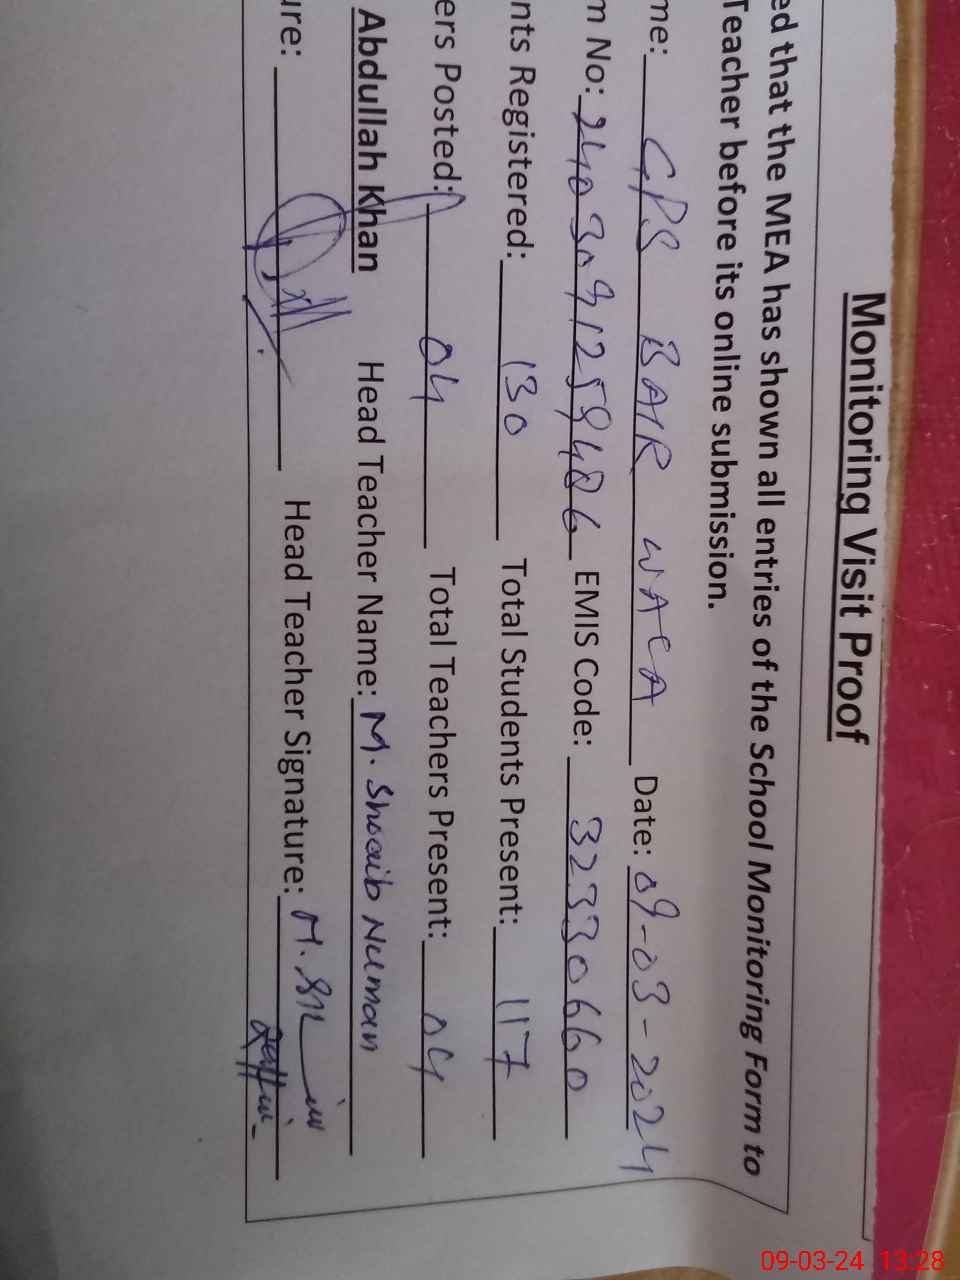 Monitoring Visit Proof
ed that the MEA has shown all entries of the School Monitoring Form to
Teacher before its online submission.
me: GPS BAIR WACA Date: 09-03-2024
m No: EMIS Code: 32330660
nts Registered: 130 Total Students Present: 117
ers Posted: 04 Total Teachers Present: 04
Abdullah Khan Head Teacher Name: M. Shoaib Numan
ure: Head Teacher Signature:
09-03-24 13:28